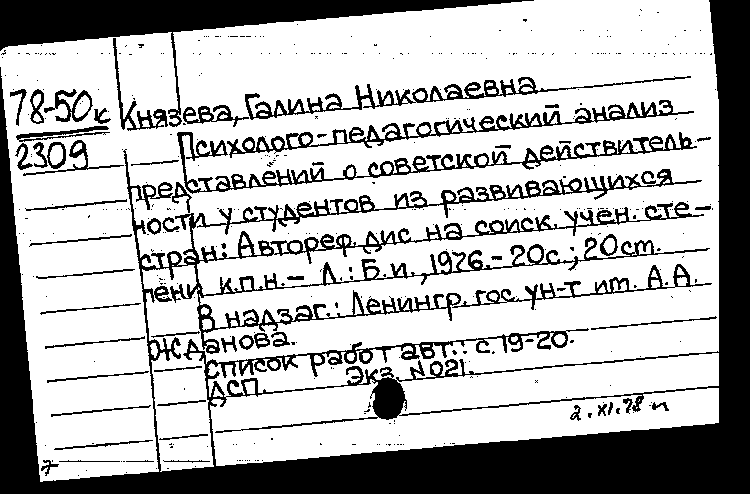 78-50к
2309
Князева, Галина Николаевна.
Психолого-педагогический анализ
представлений о советской действитель-
ности у студентов из развивающихся
стран: Автореф. дис. на соиск. учен. сте-
пени к.п.н. - Л.: Б.и., 1976. - 20с.; 20см.
В надзаг.: Ленингр. гос. ун-т им. А.А.
Жданова.
Список работ авт.: с. 19-20.
ДСП. Экз. N021.
2.XI.78